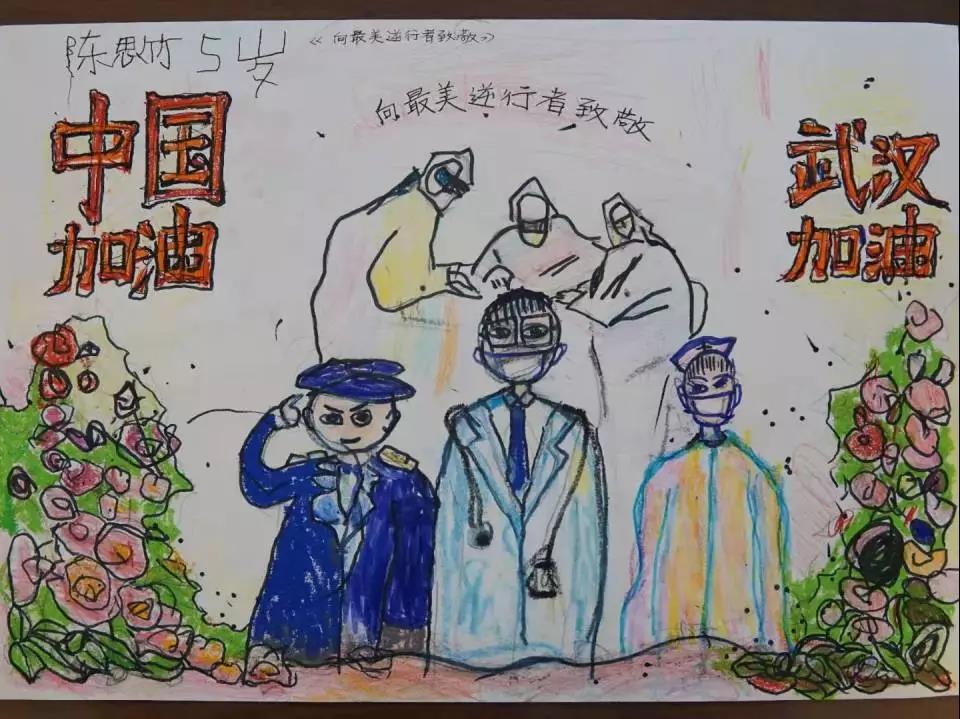 陈思竹 5岁
《向最美逆行者致敬》
向最美逆行者致敬
中国
加油
武汉
加油